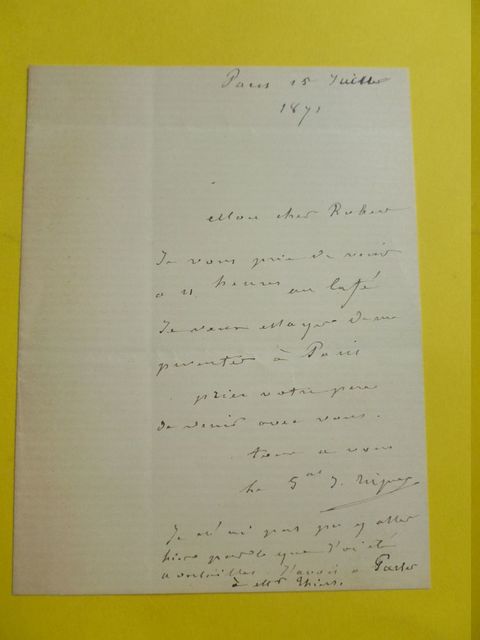 Paris 15 Juillet
1871
Mon cher Robert
Je vous prie de venir
a 11 heures au Café
Je veux essayer de me
presenter à Paris
prier votre pere
de venir avec vous.
tout a vous
Le Gal
Je n'ai pas pu y aller
hier parce que j'ai été
a Versailles. J'avais a Parler
à Mr Thiers.